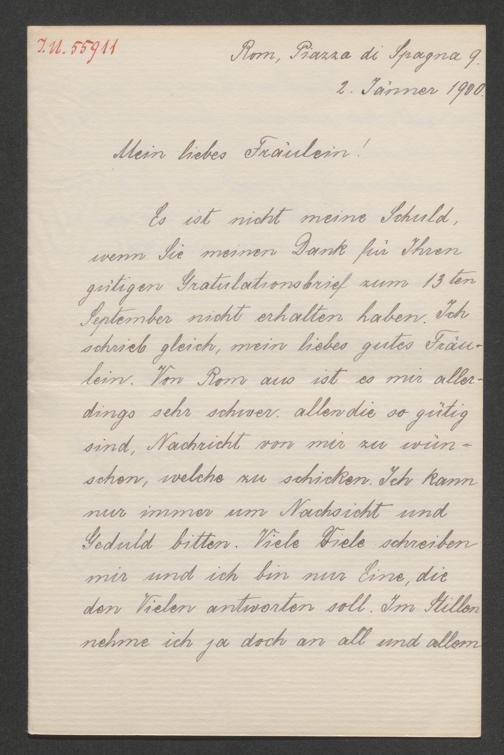 J.N. 55911
Rom, Piazza di Spagna 9.
2. Jänner 1900.
Mein liebes Fräulein!
Es ist nicht meine Schuld,
wenn Sie meinen Dank für Ihren
gütigen Gratulationsbrief zum 13ten
September nicht erhalten haben. Ich
schrieb gleich, mein liebes gutes Fräu-
lein. Von Rom aus ist es mir aller-
dings sehr schwer. allen die so gütig
sind, Nachricht von mir zu wün-
schen, welche zu schicken. Ich kann
nur immer um Nachsicht und
Geduld bitten. Viele Viele schreiben
mir und ich bin nur Eine, die
den Vielen antworten soll. Im Stillen
nehme ich ja doch an all und allem